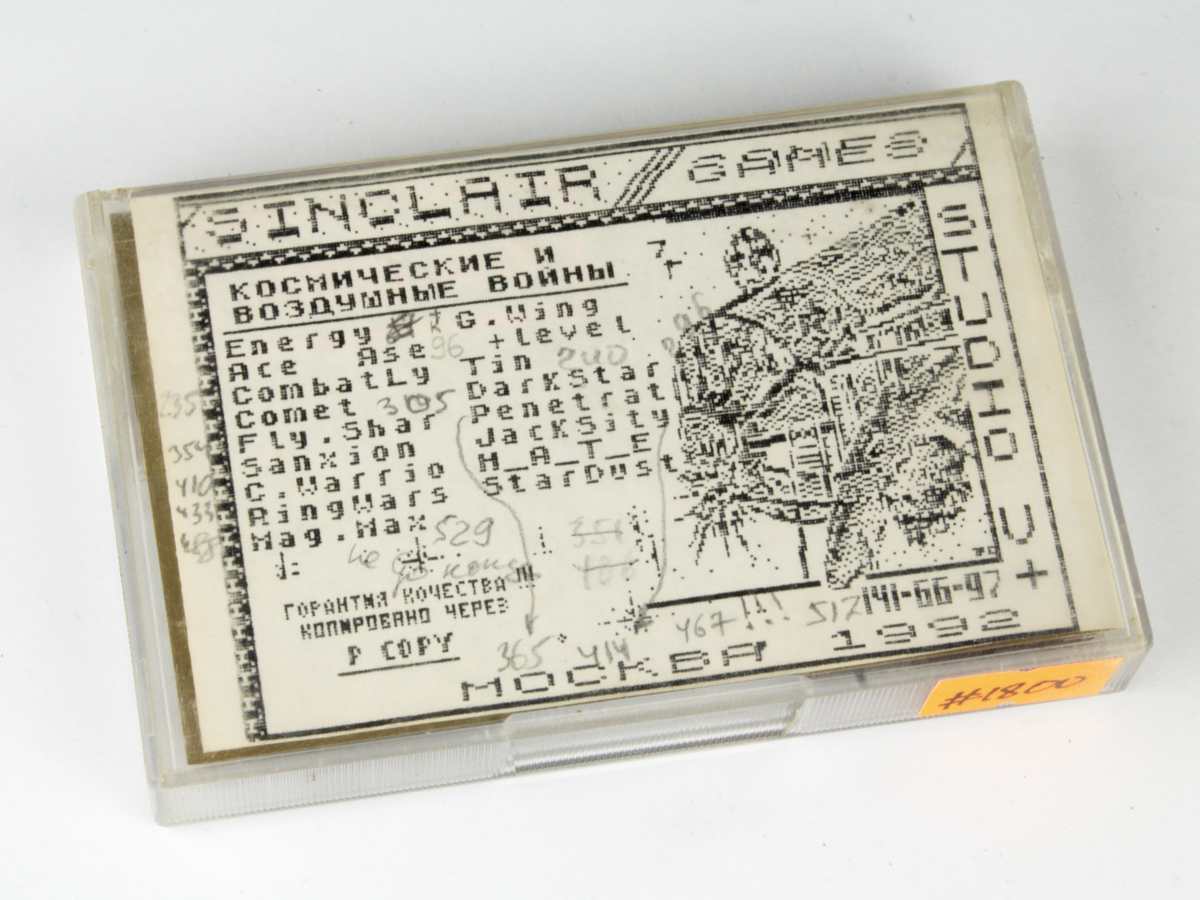 SINCLAIR GAMES
КОСМИЧЕСКИЕ И
ВОЗДУШНЫЕ ВОЙНЫ
Energy
Ace Ase 96
CombatLy
Comet 305
Fly.Shar
Sanxion
C.Warrio
RingWars
Mag.Max
G.Wing
+level
Tin 240
DarkStar
Penetrat
JackSity
H_A_T_E
StarDust
354
410
433
529
не до конца
351
186
ГОРАНТИЯ КОЧЕСТВА!!!
КОПИРОВАНО ЧЕРЕЗ
P COPY
365 414 467!!! 512
STUDIO V+
141-66-97
МОСКВА 1992
#1800